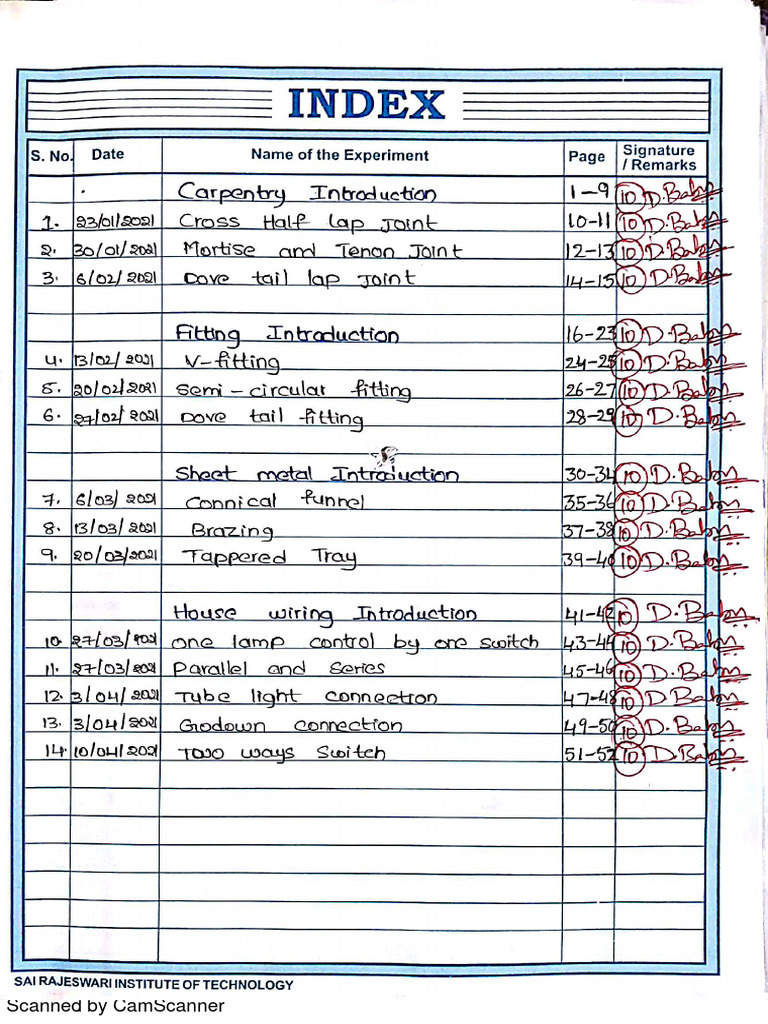 INDEX
S. No. Date Name of the Experiment Page Signature / Remarks
Carpentry Introduction 1-9 10 D.Babu
1. 23/01/2021 Cross Half lap Joint 10-11 10 D.Babu
2. 30/01/2021 Mortise and Tenon Joint 12-13 10 D.Babu
3. 6/02/2021 Dove tail lap Joint 14-15 10 D.Babu
Fitting Introduction 16-23 10 D.Babu
4. 13/02/2021 V-fitting 24-25 10 D.Babu
5. 20/02/2021 Semi-circular fitting 26-27 10 D.Babu
6. 27/02/2021 Dove tail fitting 28-29 10 D.Babu
Sheet metal Introduction 30-34 10 D.Babu
7. 6/03/2021 Connical funnel 35-36 10 D.Babu
8. 13/03/2021 Brazing 37-38 10 D.Babu
9. 20/03/2021 Tappered Tray 39-40 10 D.Babu
House wiring Introduction 41-42 10 D.Babu
10. 27/03/2021 one lamp control by one switch 43-44 10 D.Babu
11. 27/03/2021 Parallel and Series 45-46 10 D.Babu
12. 3/04/2021 Tube light connection 47-48 10 D.Babu
13. 3/04/2021 Godown connection 49-50 10 D.Babu
14. 10/04/2021 Two ways Switch 51-52 10 D.Babu
SAI RAJESWARI INSTITUTE OF TECHNOLOGY
Scanned by CamScanner